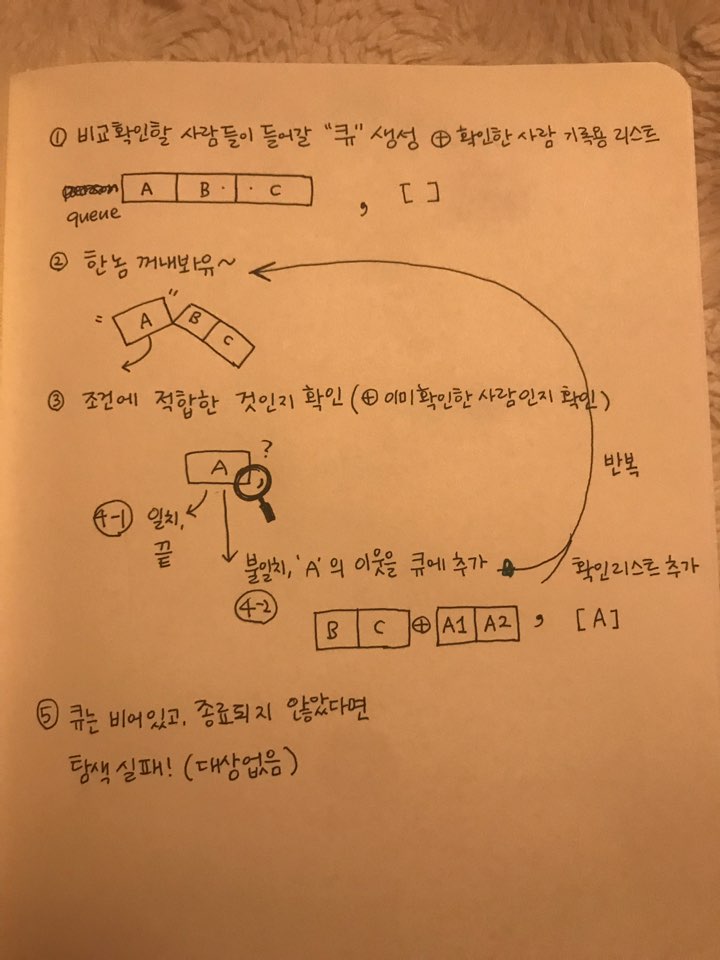 ① 비교확인할 사람들이 들어갈 "큐" 생성 ⊕ 확인한 사람 기록용 리스트
A B C , [ ]
queue
② 한놈 꺼내봐유~
" A " B C
③ 조건에 적합한 것인지 확인 (⊕ 이미확인한 사람인지 확인)
A ?
반복
4-1 일치,
끝
불일치, 'A'의 이웃을 큐에 추가 확인리스트 추가
4-2
B C ⊕ A1 A2 , [A]
⑤ 큐는 비어있고, 종료되지 않았다면
탐색 실패! (대상없음)